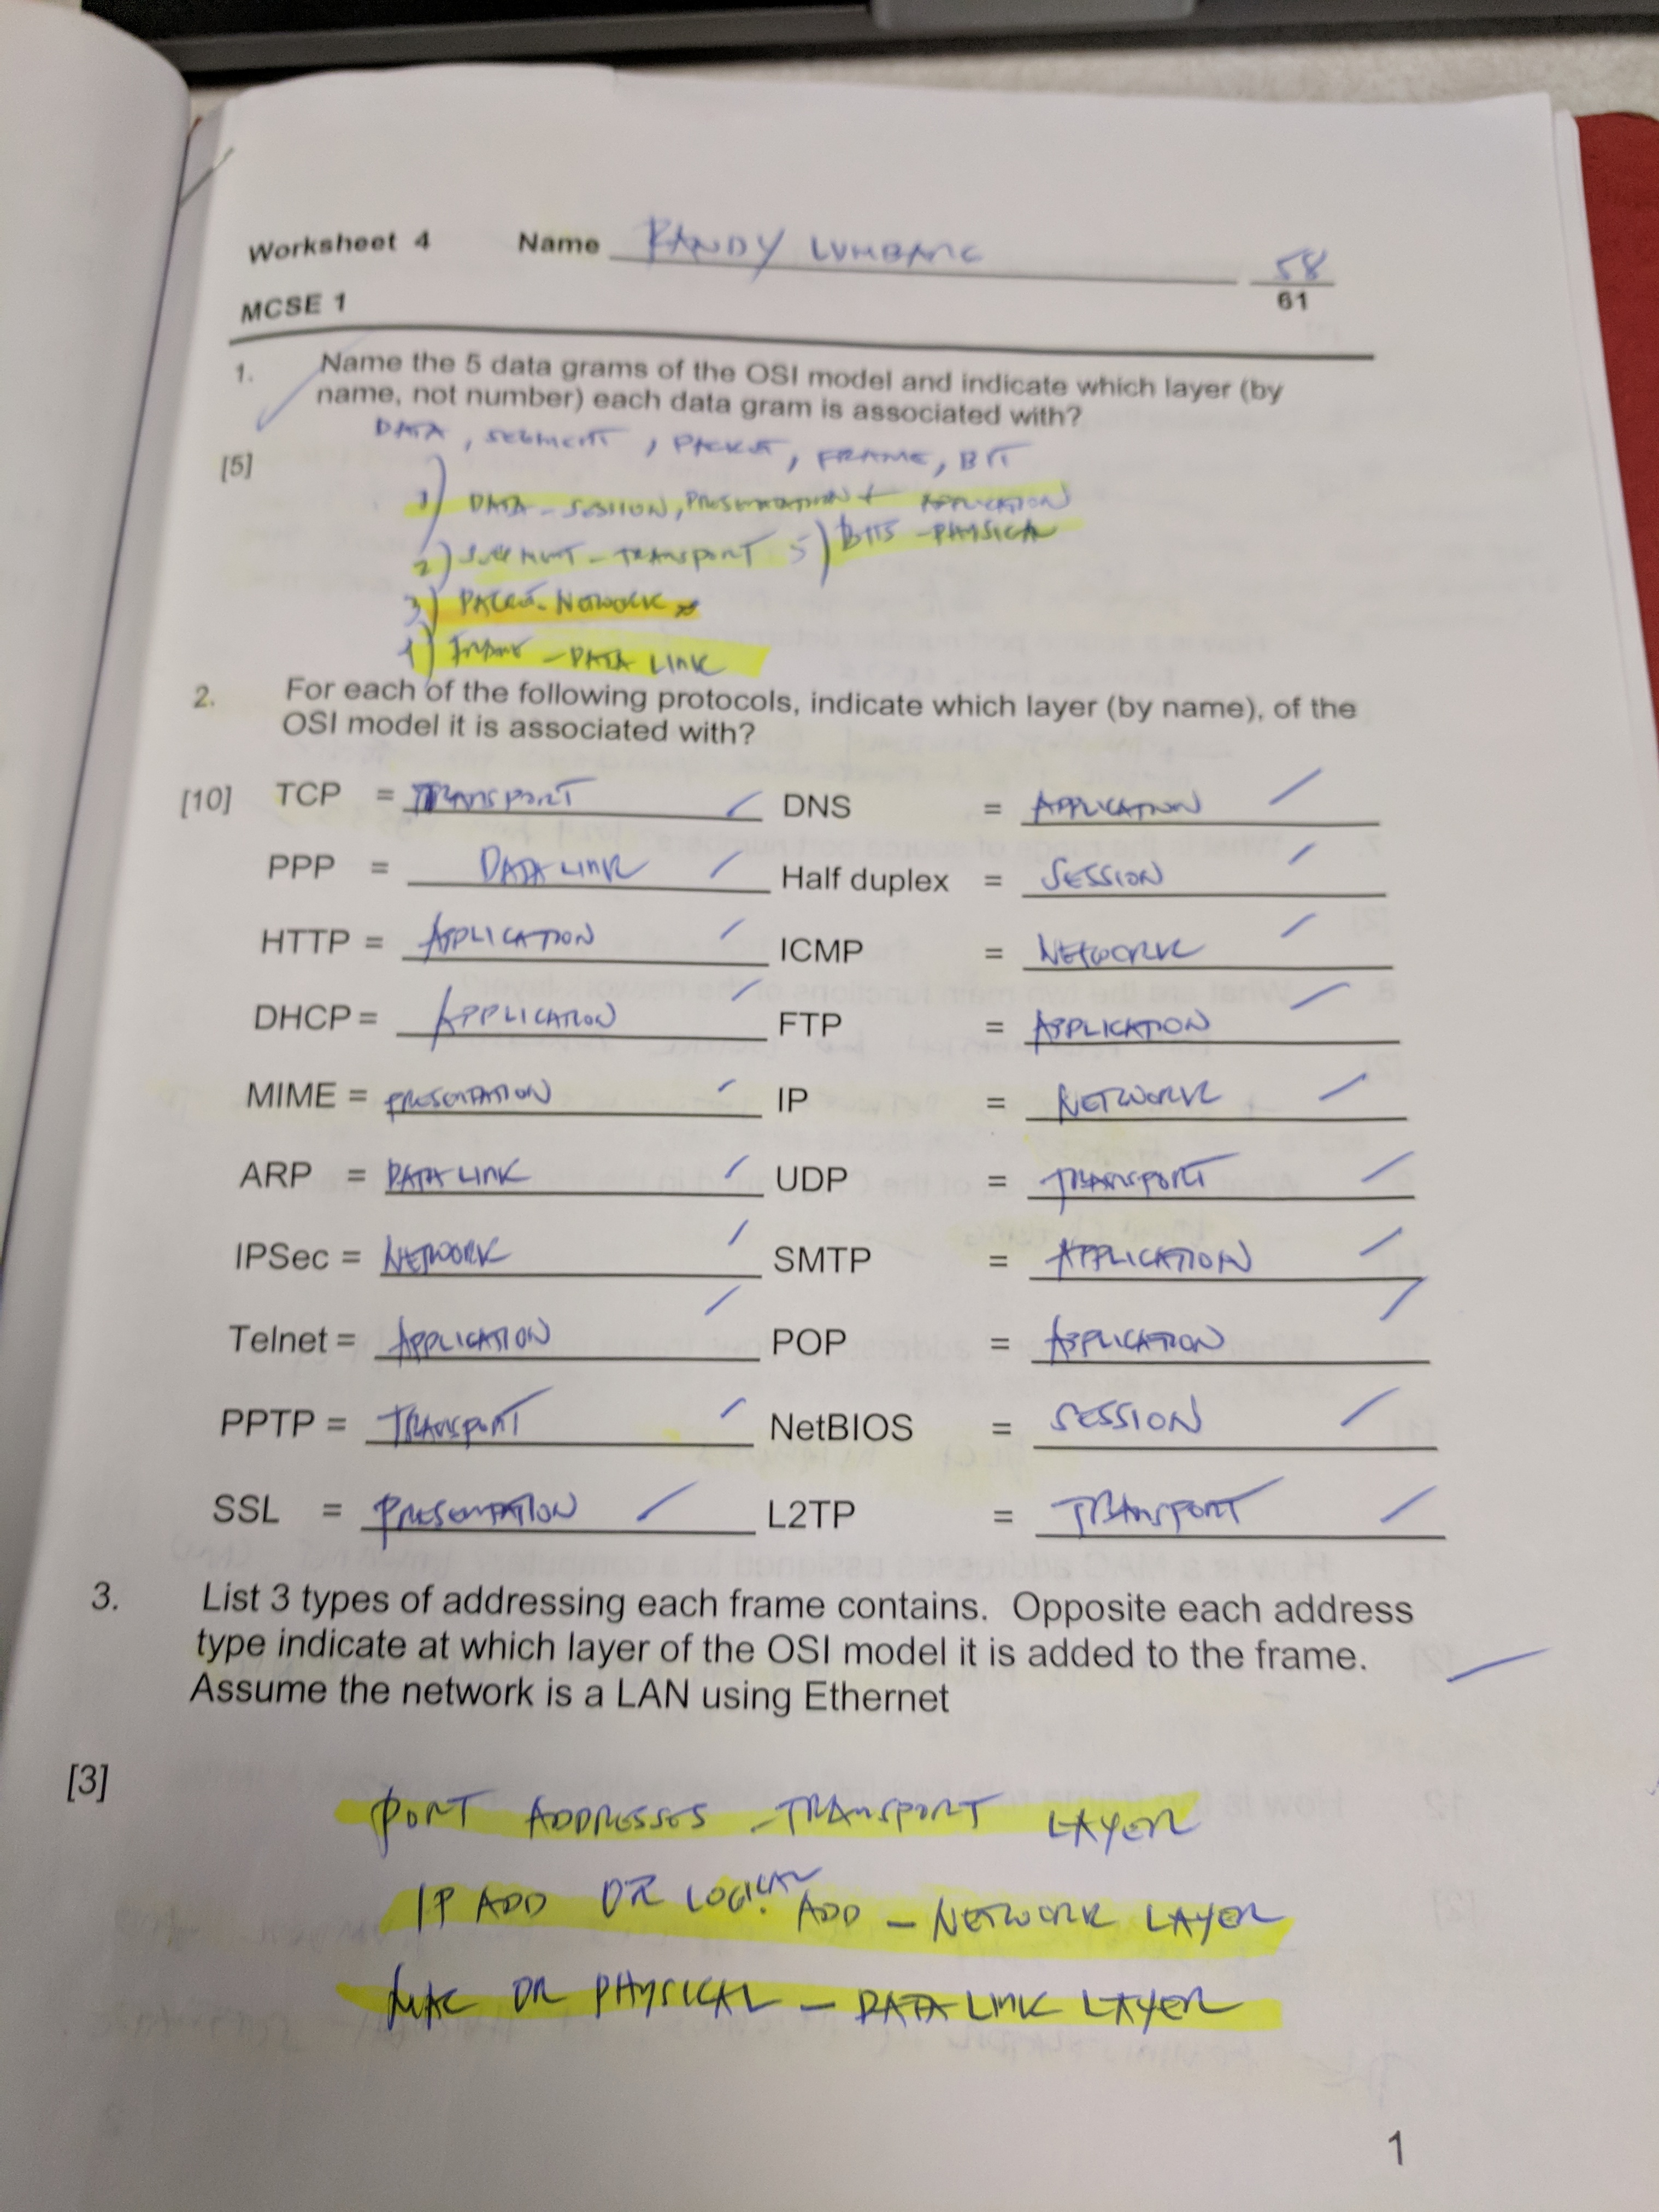 Worksheet 4 Name RANDY 58
61
MCSE 1
1. Name the 5 data grams of the OSI model and indicate which layer (by
name, not number) each data gram is associated with?
DATA, SEGMENT, PACKET, FRAME, BIT
[5]
1) DATA - SESSION, PRESENTATION + APPLICATION
2) SEGMENT - TRANSPORT 5) BITS - PHYSICAL
3) PACKET - NETWORK
4) FRAME - DATA LINK
2. For each of the following protocols, indicate which layer (by name), of the
OSI model it is associated with?
[10] TCP = TRANSPORT DNS = APPLICATION
PPP = DATA LINK Half duplex = SESSION
HTTP = APPLICATION ICMP = NETWORK
DHCP = APPLICATION FTP = APPLICATION
MIME = PRESENTATION IP = NETWORK
ARP = DATA LINK UDP = TRANSPORT
IPSec = NETWORK SMTP = APPLICATION
Telnet = APPLICATION POP = APPLICATION
PPTP = TRANSPORT NetBIOS = SESSION
SSL = PRESENTATION L2TP = TRANSPORT
3. List 3 types of addressing each frame contains. Opposite each address
type indicate at which layer of the OSI model it is added to the frame.
Assume the network is a LAN using Ethernet
[3]
PORT ADDRESSES - TRANSPORT LAYER
IP ADD OR LOGICAL ADD - NETWORK LAYER
MAC OR PHYSICAL - DATA LINK LAYER
1